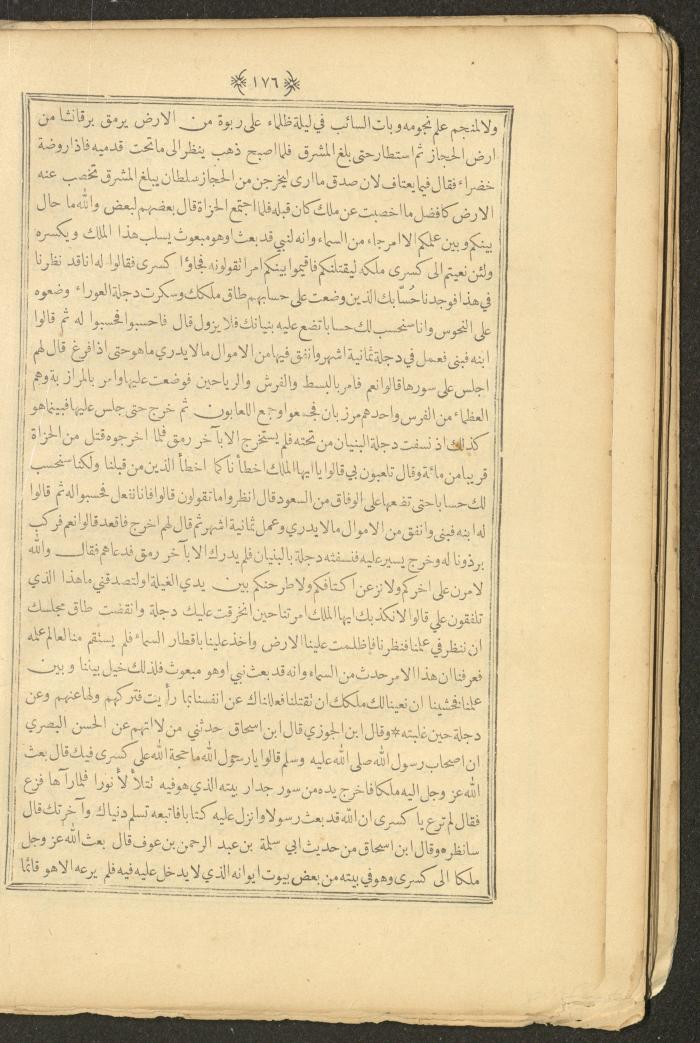 ١٧٦
ولا لمنجم علم نجومه وبات السائب في ليلة ظلماء على ربوة من الارض يرمق برقا نشا من
ارض الحجاز ثم استطار حتى بلغ المشرق فلما اصبح ذهب ينظر الى ما تحت قدميه فاذا روضة
خضراء فقال فيما يعتاف لان صدق ما ارى ليخرجن من الحجاز سلطان يبلغ المشرق تخصب عنه
الارض كافضل ما اخصبت عن ملك كان قبله فلما اجتمع الحزاة قال بعضهم لبعض والله ما حال
بينكم وبين علمكم الا امر جاء من السماء وانه لنبي قد بعث او هو مبعوث يسلب هذا الملك ويكسره
ولئن نعيتم الى كسرى ملكه ليقتلنكم فاقيموا بينكم امرا تقولونه فجاؤا كسرى فقالوا له انا قد نظرنا
في هذا فوجدنا حُسّابك الذين وضعت على حسابهم طاق ملكك وسكرت دجلة العوراء وضعوه
على النحوس وانا سنحسب لك حسابا تضع عليه بنيانك فلا يزول قال فاحسبوا فحسبوا له ثم قالوا
ابنه فبنى فعمل في دجلة ثمانية اشهر وانفق فيها من الاموال ما لا يدري ما هو حتى اذا فرغ قال لهم
اجلس على سورها قالوا نعم فامر بالبسط والفرش والرياحين فوضعت عليها وامر بالمرازبة وهم
العظماء من الفرس واحدهم مرزبان فجمعوا وجمع اللعابون ثم خرج حتى جلس عليها فبينما هو
كذلك اذ نسفت دجلة البنيان من تحته فلم يستخرج الا بآخر رمق فلما اخرجوه قتل من الحزاة
قريبا من مائة وقال تلعبون بي قالوا يا ايها الملك اخطأنا كما اخطأ الذين من قبلنا ولكنا سنحسب
لك حسابا حتى تضعها على الوفاق من السعود قال انظروا ما تقولون قالوا فانا نفعل فحسبوا له ثم قالوا
له ابنه فبنى وانفق من الاموال ما لا يدري وعمل ثمانية اشهر ثم قال لهم اخرج فاقعد قالوا نعم فركب
برذونا له وخرج يسير عليه فنسفته دجلة بالبنيان فلم يدرك الا بآخر رمق فدعاهم فقال والله
لامرن على اخركم ولانزعن اكتافكم ولاطرحنكم بين يدي الفيلة او لتصدقني ما هذا الذي
تلفقون علي قالوا لا نكذبك ايها الملك امرتنا حين انخرقت عليك دجلة وانقضت طاق مجلسك
ان ننظر في علمنا فنظرنا فاظلمت علينا الارض واخذ علينا باقطار السماء فلم يستقم منا لعالم علمه
فعرفنا ان هذا الامر حدث من السماء وانه قد بعث نبي او هو مبعوث فلذلك حيل بيننا وبين
علمنا فخشينا ان نعينا لك ملكك ان تقتلنا فعللناك عن انفسنا بما رأيت فتركهم ولها عنهم وعن
دجلة حين غلبته * وقال ابن الجوزي قال ابن اسحاق حدثني من لا اتهم عن الحسن البصري
ان اصحاب رسول الله صلى الله عليه وسلم قالوا يا رسول الله ما حجة الله على كسرى فيك قال بعث
الله عز وجل اليه ملكا فاخرج يده من سور جدار بيته الذي هو فيه تتلألأ نورا فلما رآها فزع
فقال لم ترع يا كسرى ان الله قد بعث رسولا وانزل عليه كتابا فاتبعه تسلم دنياك وآخرتك قال
سانظره وقال ابن اسحاق من حديث ابي سلمة بن عبد الرحمن بن عوف قال بعث الله عز وجل
ملكا الى كسرى وهو في بيته من بعض بيوت ايوانه الذي لا يدخل عليه فيه فلم يرعه الا هو قائما